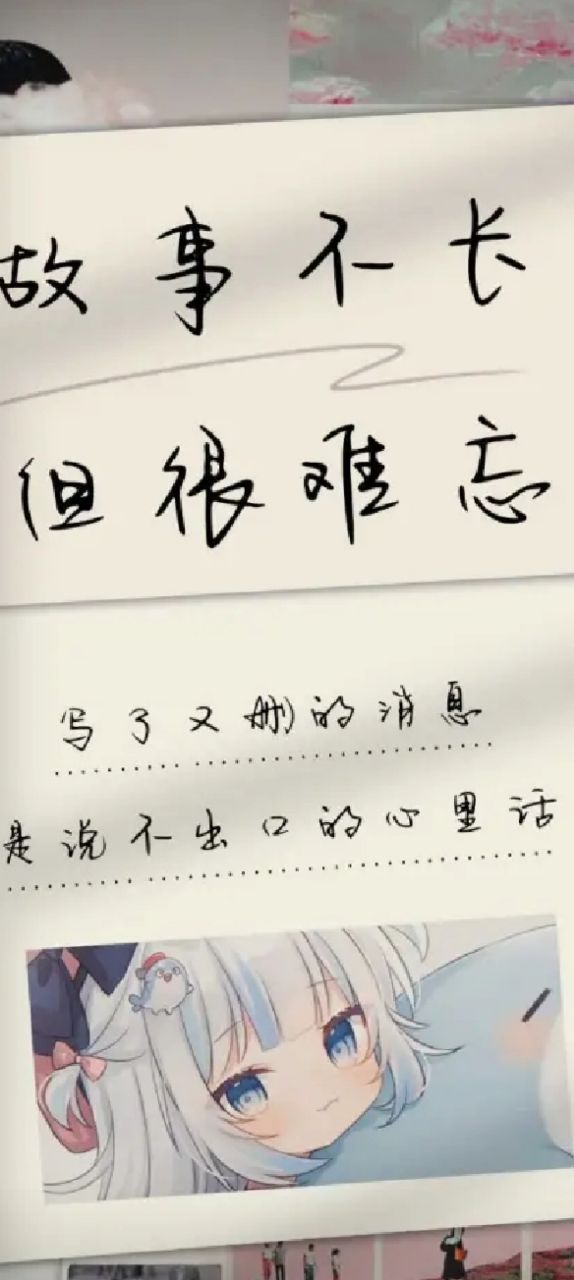 故事不长
但很难忘
写了又删的消息
是说不出口的心里话